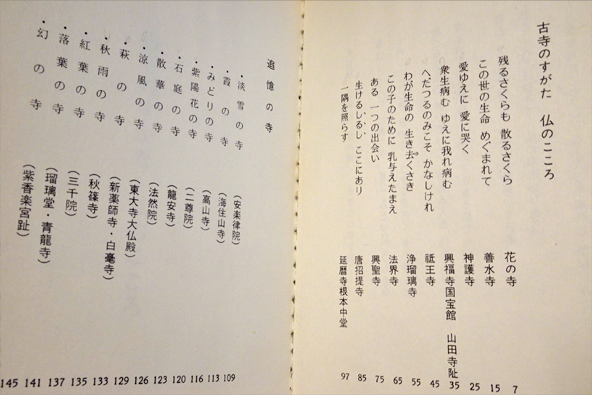 古寺のすがた 仏のこころ
残るさくらも 散るさくら 花の寺 7
この世の生命 めぐまれて 善水寺 15
愛ゆえに 愛に哭く 神護寺 25
衆生病む ゆえに我れ病む 興福寺国宝館 山田寺趾 35
へだつるのみこそ かなしけれ 祗王寺 45
わが生命の 生き去くさき 浄瑠璃寺 55
この子のために 乳与えたまえ 法界寺 65
ある 一つの出会い 興聖寺 75
生けるしるし、ここにあり 唐招提寺 85
一隅を照らす 延暦寺根本中堂 97
追憶の寺
・淡雪の寺 (安楽律院) 109
・霞の寺 (海住山寺) 113
・みどりの寺 (高山寺) 116
・紫陽花の寺 (二尊院) 120
・石庭の寺 (龍安寺) 123
・散華の寺 (法然院) 126
・涼風の寺 (東大寺大仏殿) 129
・萩の寺 (新薬師寺・白毫寺) 133
・秋雨の寺 (秋篠寺) 135
・紅葉の寺 (三千院) 137
・落葉の寺 (瑠璃堂・青龍寺) 141
・幻の寺 (紫香楽宮趾) 145